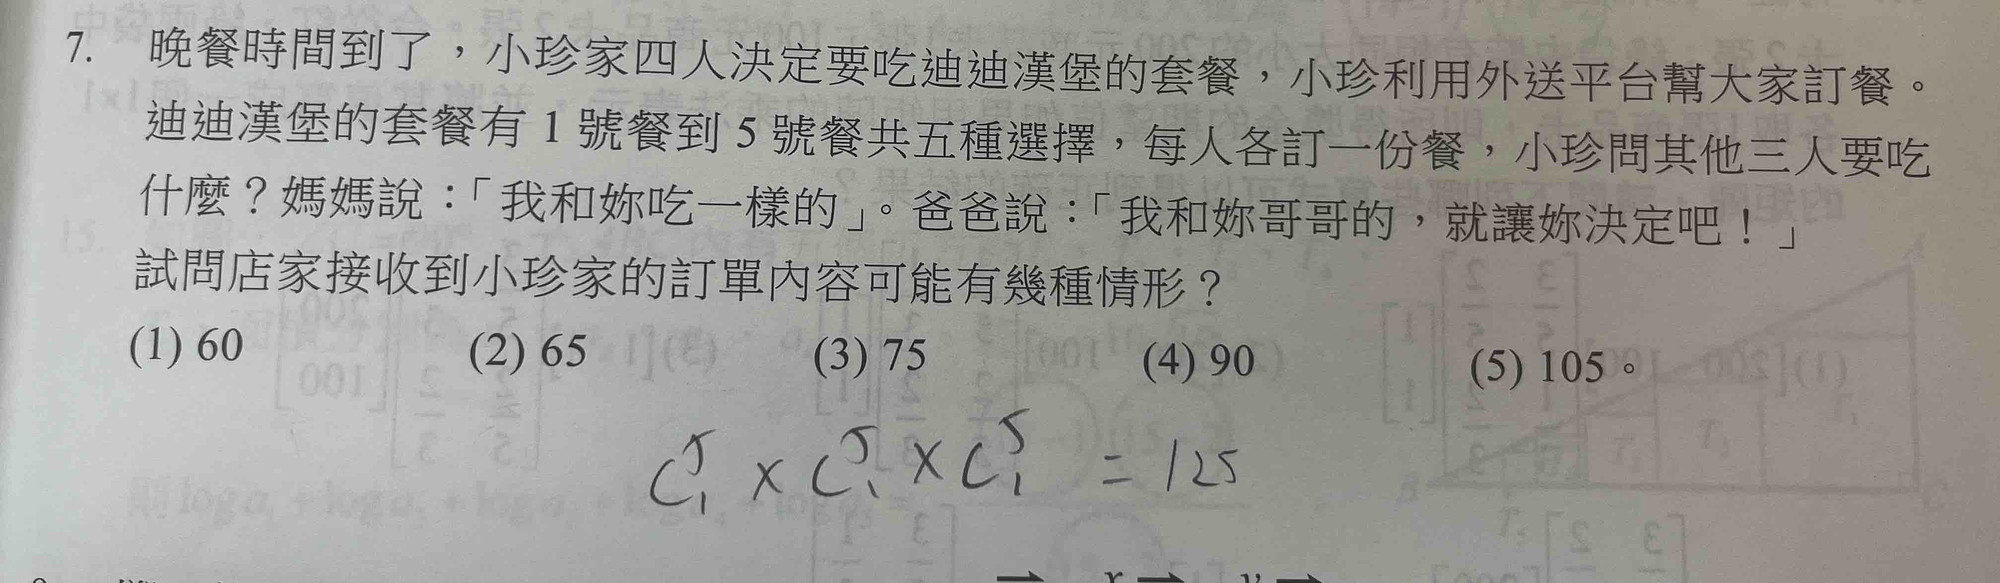 7. 晚餐時間到了，小珍家四人決定要吃迪迪漢堡的套餐，小珍利用外送平台幫大家訂餐。
迪迪漢堡的套餐有 1 號餐到 5 號餐共五種選擇，每人各訂一份餐，小珍問其他三人要吃
什麼？媽媽說：「我和妳吃一樣的」。爸爸說：「我和妳哥哥的，就讓妳決定吧！」
試問店家接收到小珍家的訂單內容可能有幾種情形？
(1) 60 (2) 65 (3) 75 (4) 90 (5) 105。
C⁵₁ × C⁵₁ × C⁵₁ = 125